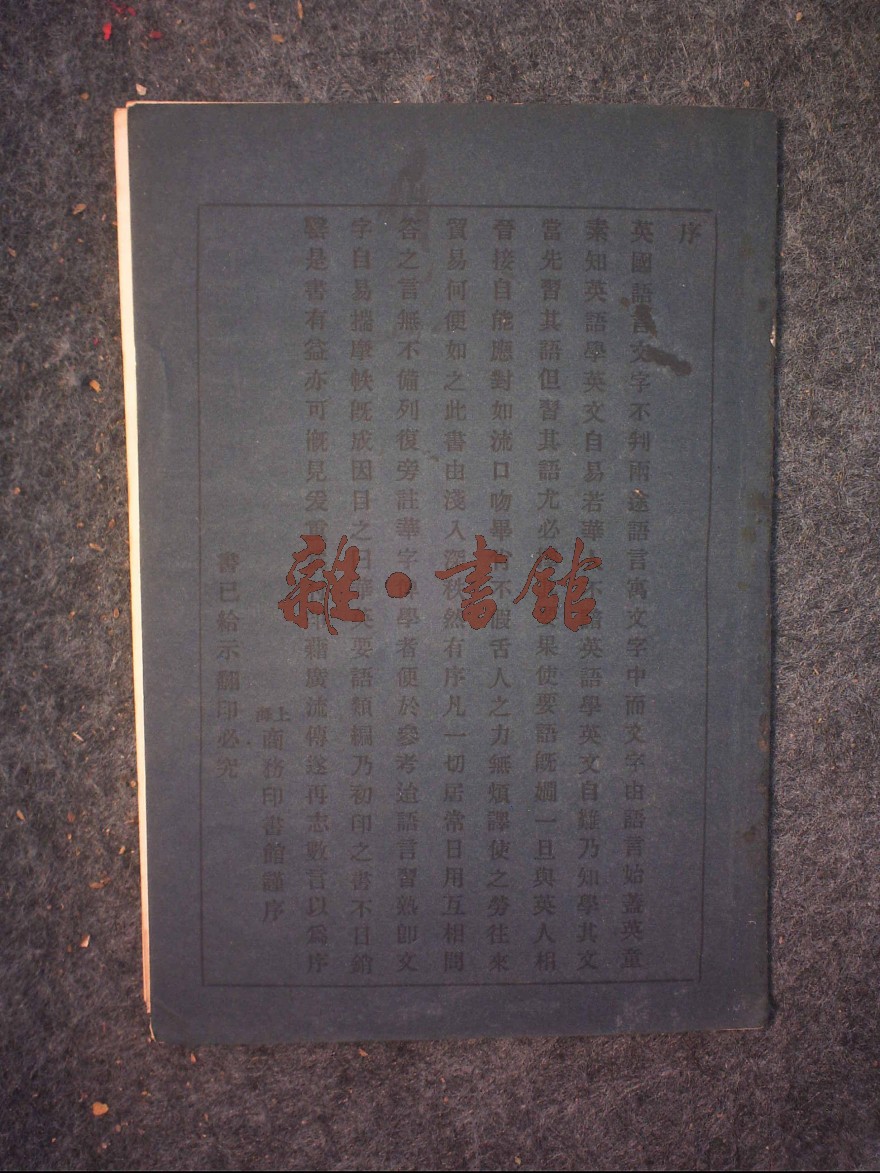 序
英國語言文字不判兩途語言寓文字中而文字由語言始蓋英童
素知英語學英文自易若華不諳英語學英文自難乃知學其文
當先習其語但習其語尤必果使要語旣嫺一旦與英人相
晉接自能應對如流口吻畢肖不假舌人之力無煩譯使之勞往來
貿易何便如之此書由淺入深秩然有序凡一切居常日用互相問
答之言無不備列復旁註華字俾學者便於參考迨語言習熟卽文
字自易揣摩帙旣成因目之曰華英要語類編乃初印之書不日銷
罄是書有益亦可槪見爰重印藉廣流傳遂再志數言以爲序
上海商務印書館謹序
書已給示翻印必究
雜·書館